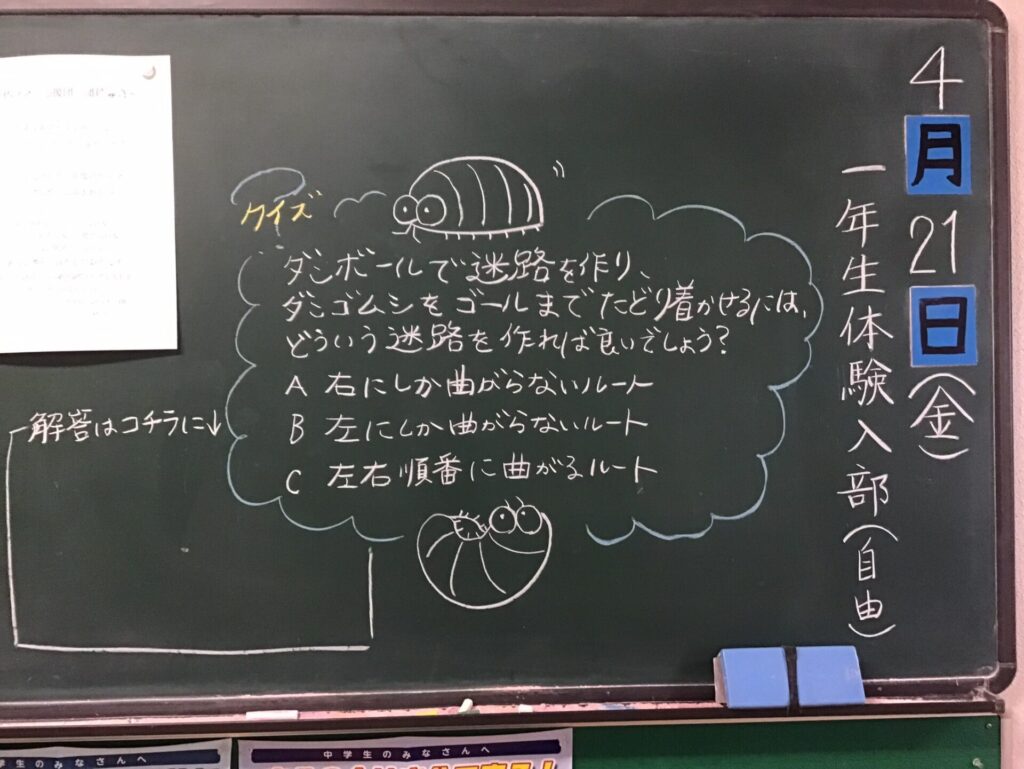 4月21日(金)
一年生体験入部(自由)
クイズ
ダンボールで迷路を作り、
ダンゴムシをゴールまでたどり着かせるには、
どういう迷路を作れば良いでしょう?
A 右にしか曲がらないルート
B 左にしか曲がらないルート
C 左右順番に曲がるルート
解答はコチラに↓
学生のみなさんへ
中学生のみなさんへ